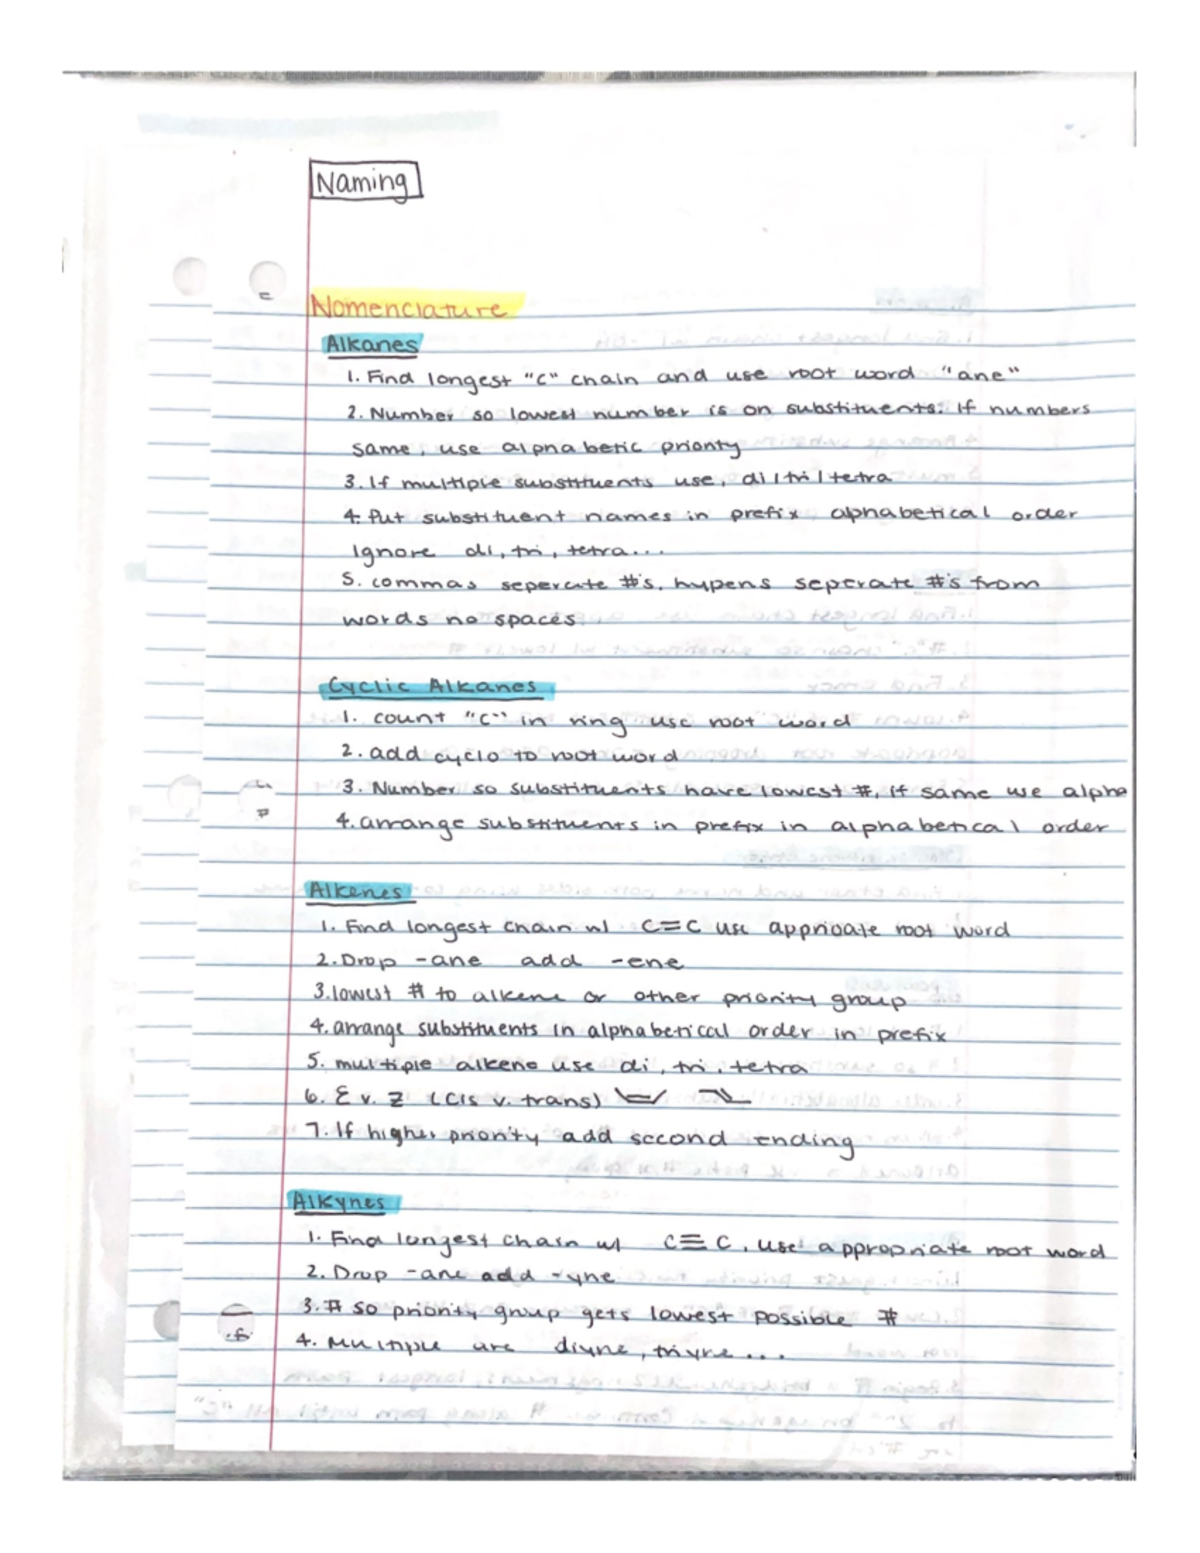 Naming
Nomenclature
Alkanes
1. Find longest "C" chain and use root word "ane"
2. Number so lowest number is on substituents. If numbers
same, use alphabetic priority
3. If multiple substituents use, di/tri/tetra
4. Put substituent names in prefix, alphabetical order
Ignore di, tri, tetra...
5. commas seperate #'s, hypens seperate #'s from
words no spaces
Cyclic Alkanes
1. count "C" in ring use root word
2. add cyclo to root word
3. Number so substituents have lowest #, if same use alpha
4. arrange substituents in prefix in alphabetical order
Alkenes
1. Find longest chain w/ C=C use approiate root word
2. Drop -ane add -ene
3. lowest # to alkene or other priority group
4. arrange substituents in alphabetical order in prefix
5. multiple alkene use di, tri, tetra
6. E v. Z (cis v. trans)
7. If higher priority add second ending
Alkynes
1. Find longest chain w/ C≡C, use appropriate root word
2. Drop -ane add -yne
3. # so priority group gets lowest possible #
4. Multiple are diyne, triyne...